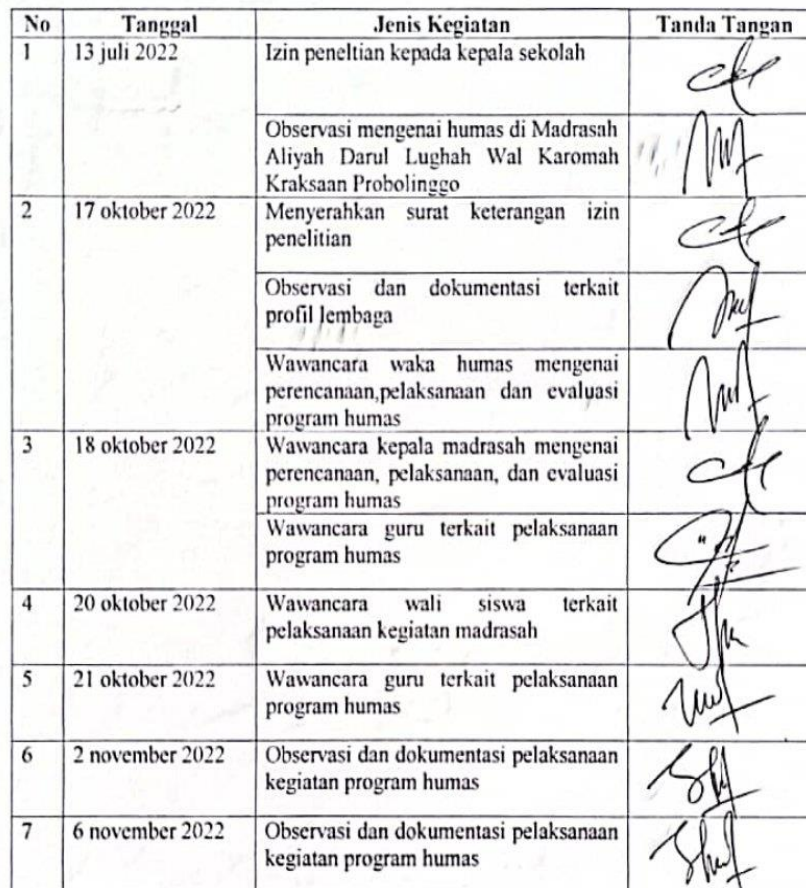 No Tanggal Jenis Kegiatan Tanda Tangan
1 13 juli 2022 Izin peneltian kepada kepala sekolah
Observasi mengenai humas di Madrasah
Aliyah Darul Lughah Wal Karomah
Kraksaan Probolinggo
2 17 oktober 2022 Menyerahkan surat keterangan izin
penelitian
Observasi dan dokumentasi terkait
profil lembaga
Wawancara waka humas mengenai
perencanaan,pelaksanaan dan evaluasi
program humas
3 18 oktober 2022 Wawancara kepala madrasah mengenai
perencanaan, pelaksanaan, dan evaluasi
program humas
Wawancara guru terkait pelaksanaan
program humas
4 20 oktober 2022 Wawancara wali siswa terkait
pelaksanaan kegiatan madrasah
5 21 oktober 2022 Wawancara guru terkait pelaksanaan
program humas
6 2 november 2022 Observasi dan dokumentasi pelaksanaan
kegiatan program humas
7 6 november 2022 Observasi dan dokumentasi pelaksanaan
kegiatan program humas